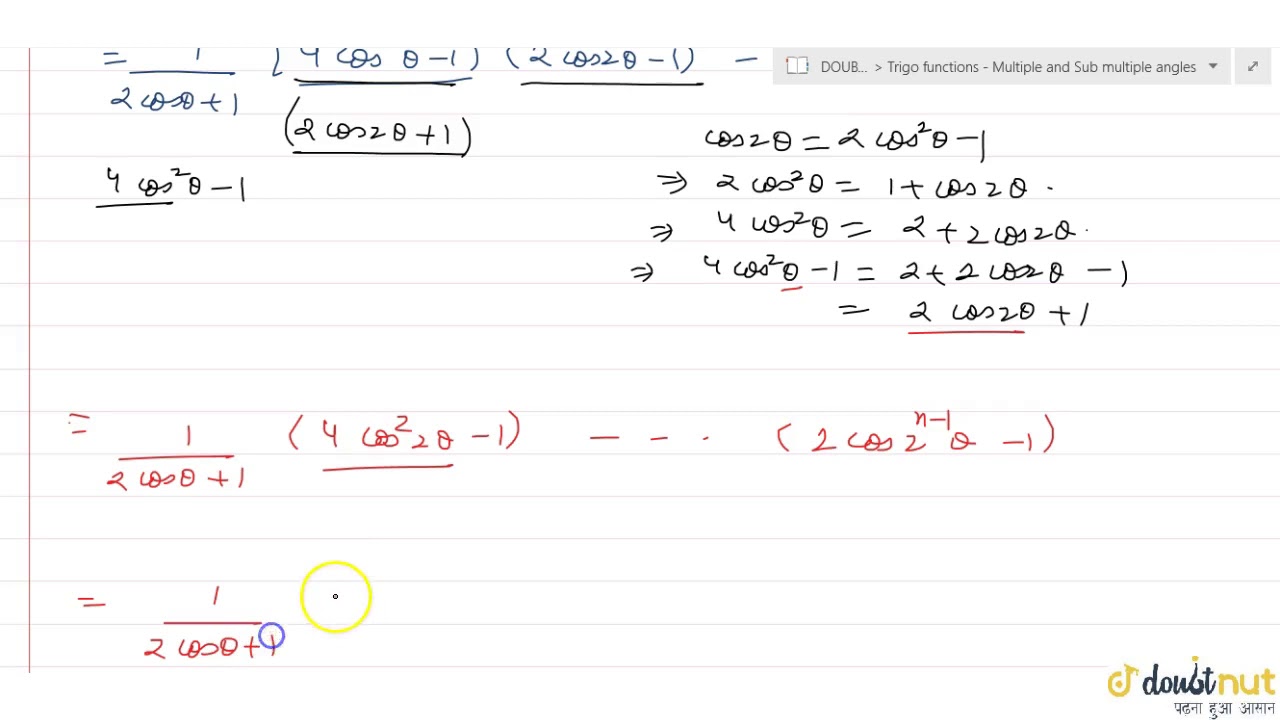 = 1/(2 cosθ + 1) [4 cos θ − 1) (2 cos2θ − 1) −
DOUB... > Trigo functions - Multiple and Sub multiple angles
(2 cos2θ + 1)
cos2θ = 2 cos²θ − 1
4 cos²θ − 1
⇒ 2 cos²θ = 1 + cos2θ .
⇒ 4 cos²θ = 2 + 2 cos2θ .
⇒ 4 cos²θ − 1 = 2 + 2 cos2θ − 1
= 2 cos2θ + 1
= 1/(2 cosθ + 1) (4 cos²2θ − 1) − − . (2 cos2ⁿ⁻¹θ − 1)
= 1/(2 cosθ + 1)
doubtnut
पढ़ना हुआ आसान